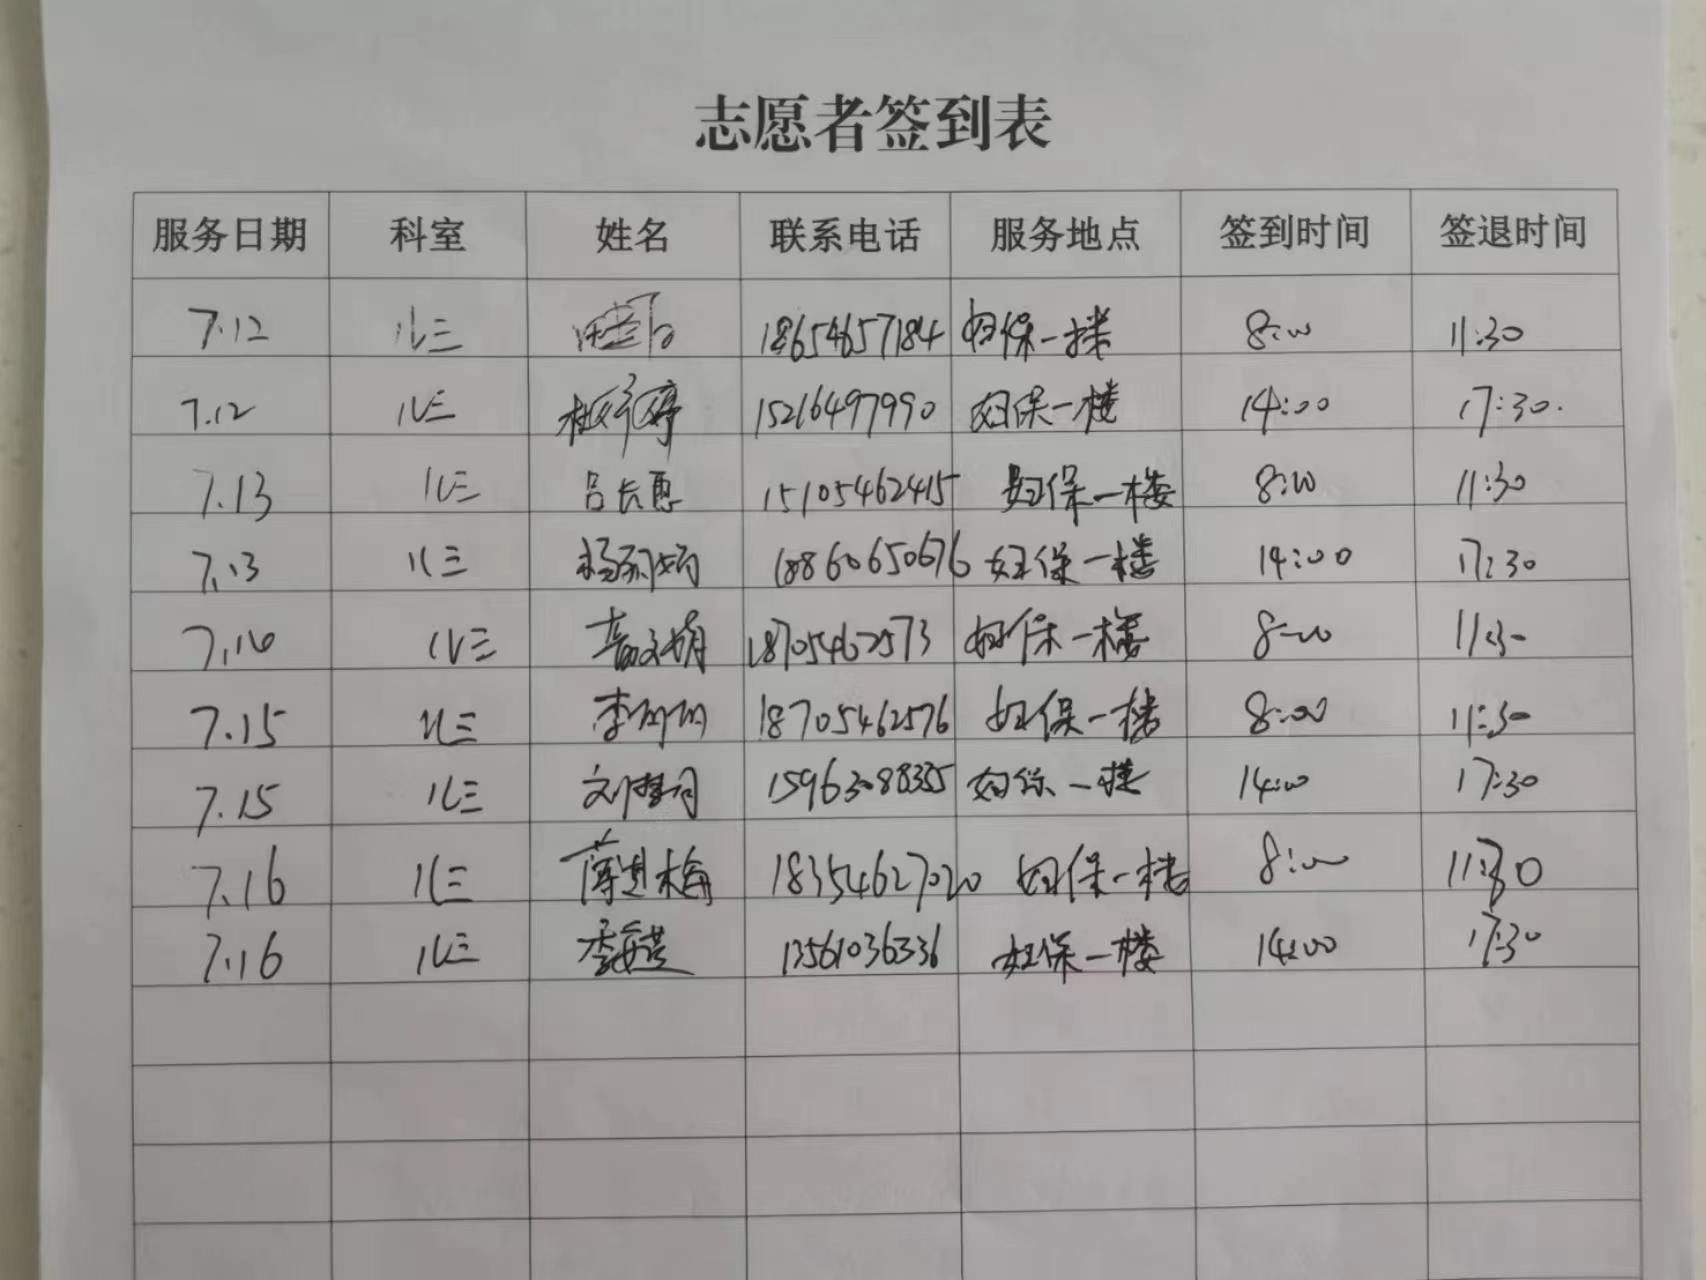 志愿者签到表
服务日期 科室 姓名 联系电话 服务地点 签到时间 签退时间
7.12 儿三 18654657184 妇保一楼 8:00 11:30
7.12 儿三 15216497990 妇保一楼 14:00 17:30.
7.13 儿三 吕长惠 15105462415 妇保一楼 8:00 11:30
7.13 儿三 18860650676 妇保一楼 14:00 17:30
儿三 18705462573 妇保一楼 8:00 11:30
7.15 儿三 李 18705462576 妇保一楼 8:00 11:30
7.15 儿三 刘梦月 15963088335 妇保一楼 14:00 17:30
7.16 儿三 薄进梅 18354627020 妇保一楼 8:00 11:30
7.16 儿三 李 13561036336 妇保一楼 14:00 17:30